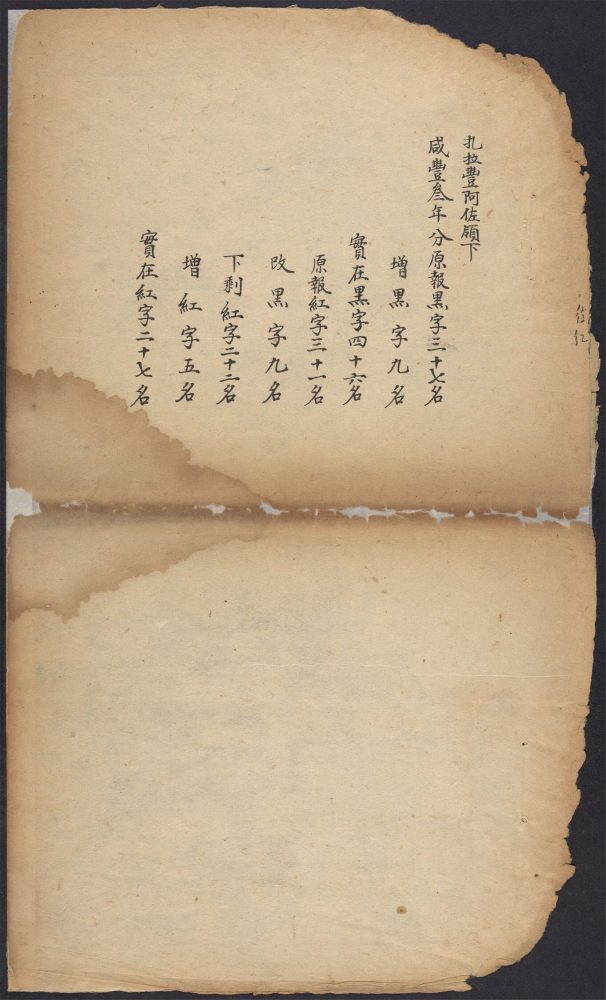 扎拉豐阿佐領下
咸豐叁年分原報黑字三十七名
增黑字九名
實在黑字四十六名
原報紅字三十一名
改黑字九名
下剩紅字二十二名
增紅字五名
實在紅字二十七名